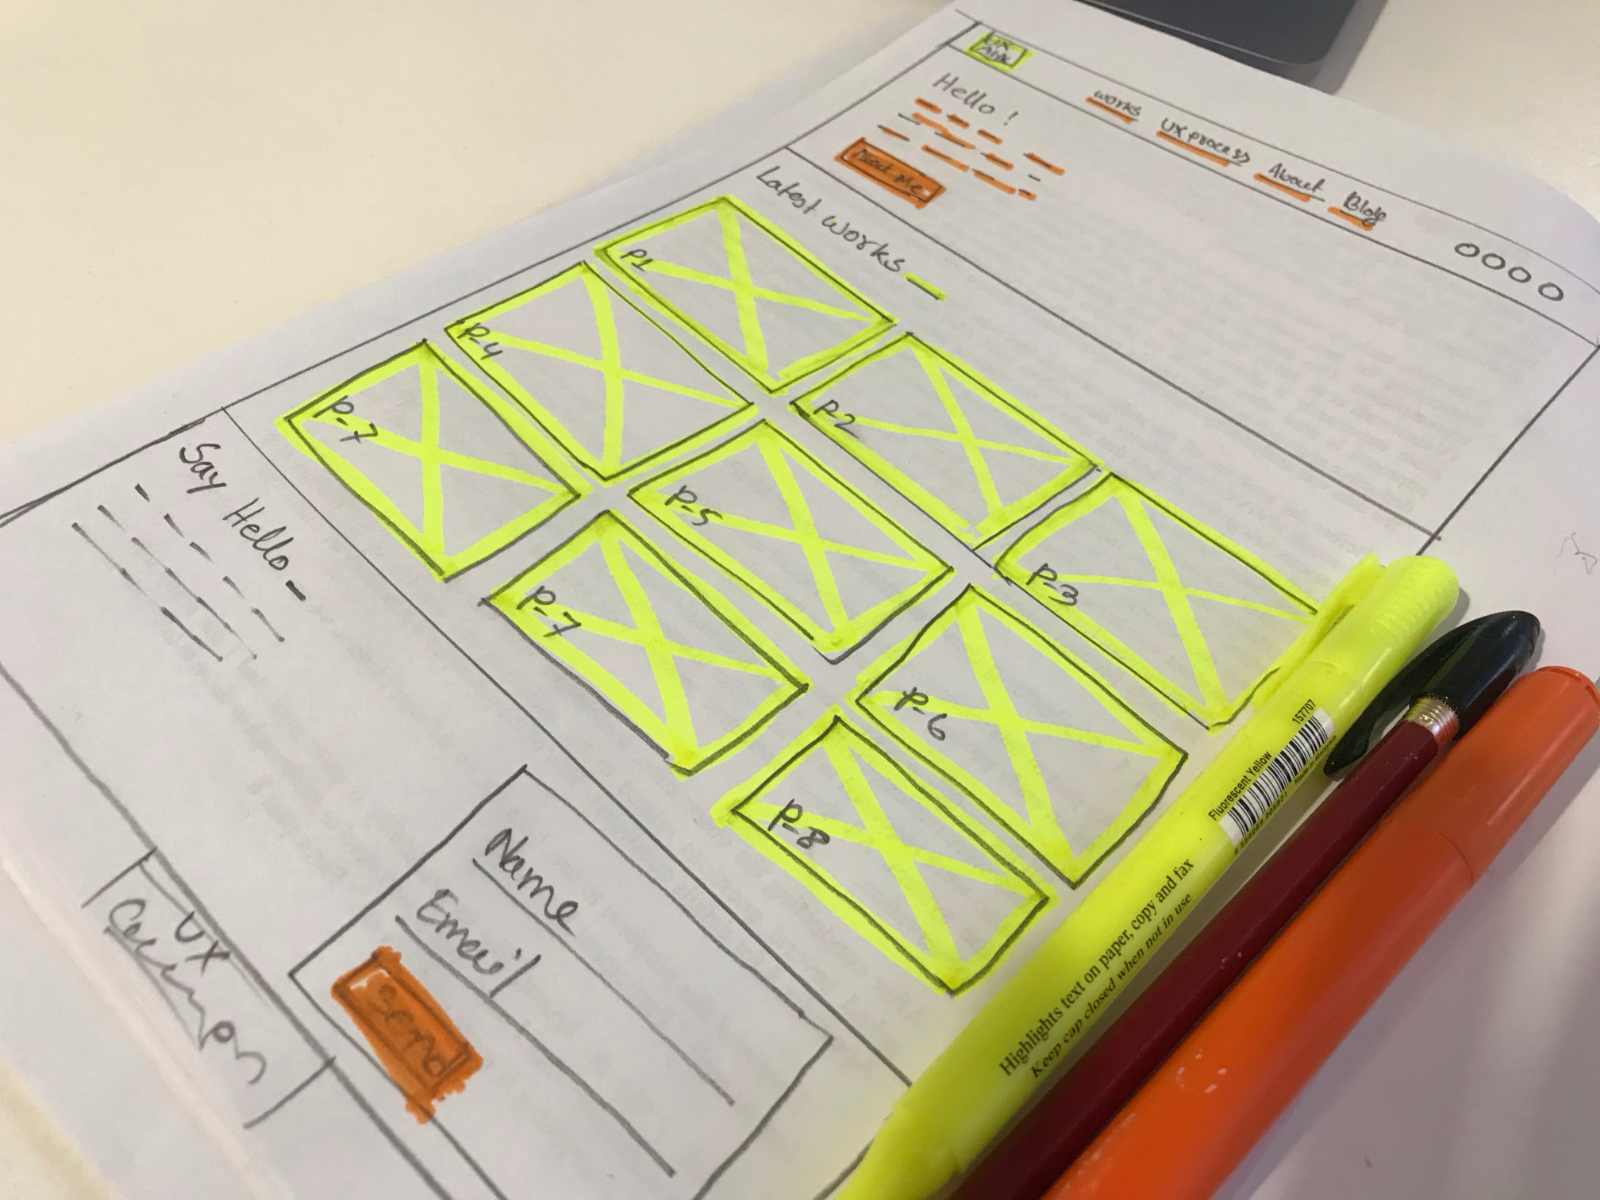 UX
works
UX process
About
Blog
Hello !
About Me
Latest works
P1
P-2
P-3
P-4
P-5
P-6
P-7
P-7
P-8
Say Hello
Name
Email
Send
UX
Fluorescent Yellow
157707
Highlights text on paper, copy and fax
Keep cap closed when not in use